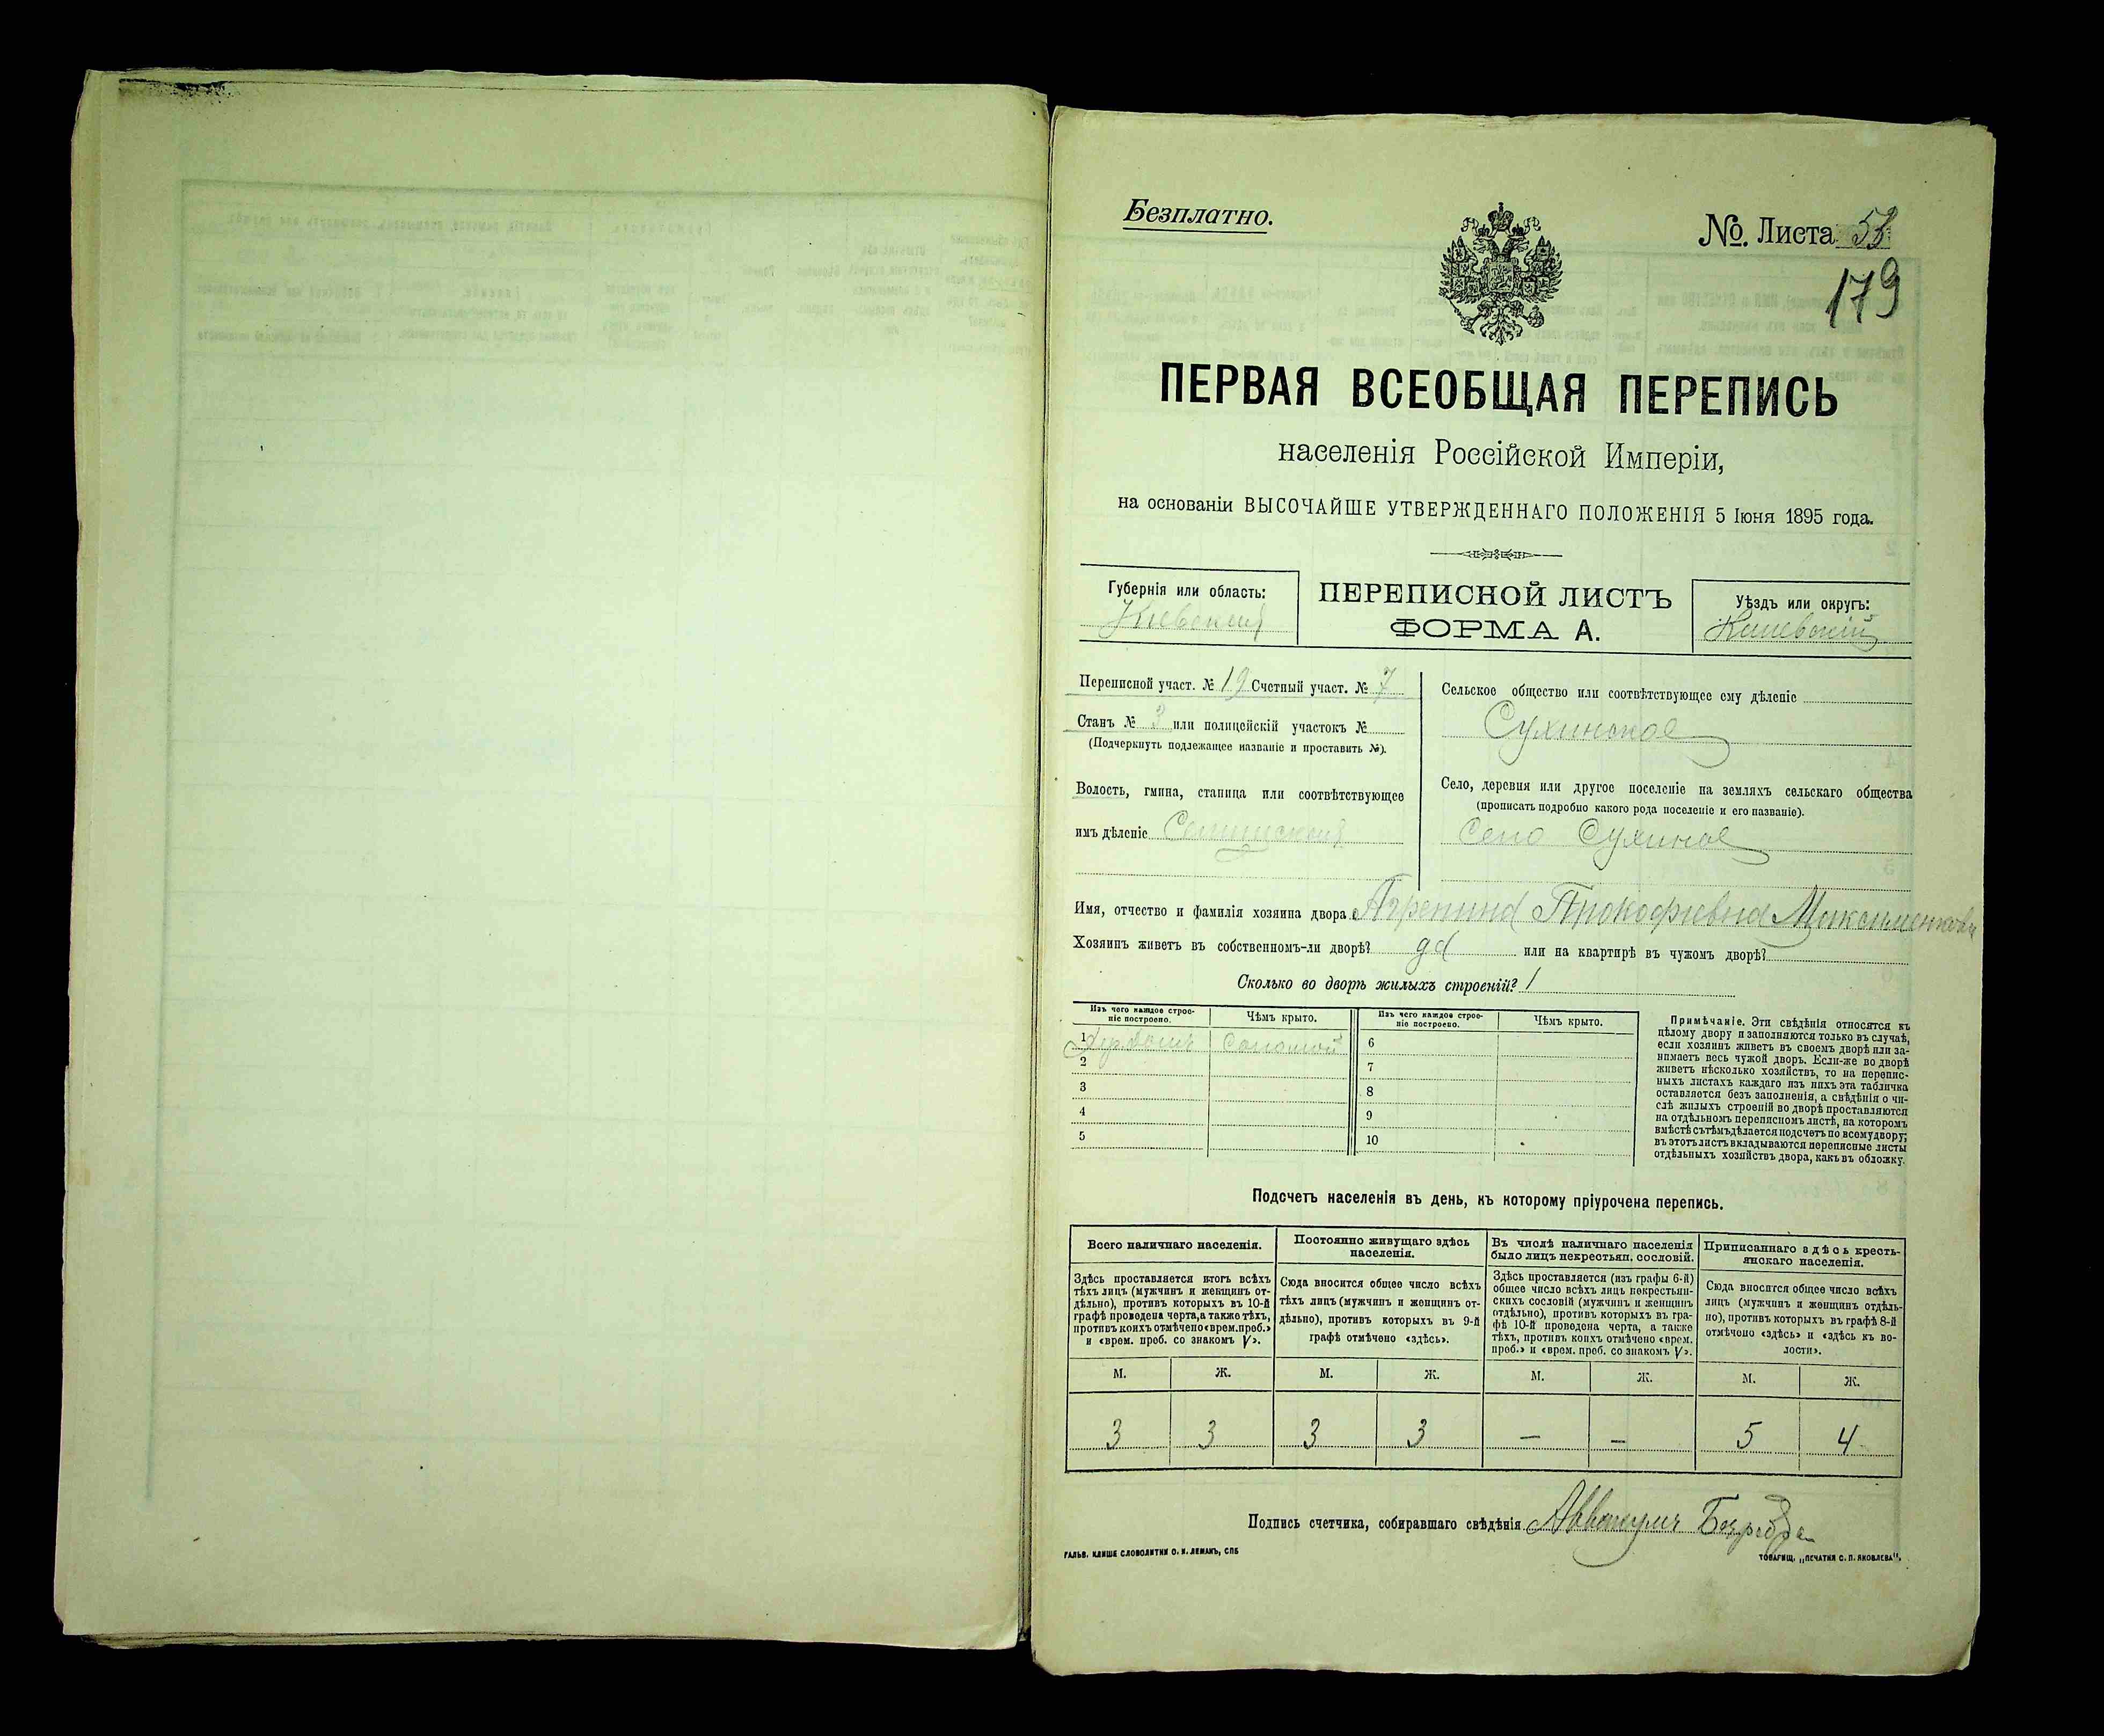 Безплатно.
№. Листа 53
179
ПЕРВАЯ ВСЕОБЩАЯ ПЕРЕПИСЬ
населенія Россійской Имперіи,
на основаніи ВЫСОЧАЙШЕ УТВЕРЖДЕННАГО ПОЛОЖЕНІЯ 5 Іюня 1895 года.
Губернія или область:
Кіевская
ПЕРЕПИСНОЙ ЛИСТЪ
ФОРМА А.
Уѣздъ или округъ:
Каневскій
Переписной участ. № 19 Счетный участ. № 7
Станъ № 3 или полицейскій участокъ №
(Подчеркнуть подлежащее названіе и проставить №).
Волость, гмина, станица или соотвѣтствующее
имъ дѣленіе
Сельское общество или соотвѣтствующее ему дѣленіе
Сухинское
Село, деревня или другое поселеніе на земляхъ сельскаго общества
(прописать подробно какого рода поселеніе и его названіе).
Село Сухиное
Имя, отчество и фамилія хозяина двора Агрепина Прокофиевна Максименкова
Хозяинъ живетъ въ собственномъ-ли дворѣ? да или на квартирѣ въ чужомъ дворѣ?
Сколько во дворѣ жилыхъ строеній? 1
Изъ чего каждое строе-
ніе построено.
Чѣмъ крыто.
Изъ чего каждое строе-
ніе построено.
Чѣмъ крыто.
1 Соломой
2
3
4
5
6
7
8
9
10
Примѣчаніе. Эти свѣдѣнія относятся къ
цѣлому двору и заполняются только въ случаѣ,
если хозяинъ живетъ въ своемъ дворѣ или за-
нимаетъ весь чужой дворъ. Если-же во дворѣ
живетъ нѣсколько хозяйствъ, то на перепис-
ныхъ листахъ каждаго изъ нихъ эта табличка
оставляется безъ заполненія, а свѣдѣнія о чи-
слѣ жилыхъ строеній во дворѣ проставляются
на отдѣльномъ переписномъ листѣ, на которомъ
вмѣстѣ съ тѣмъ дѣлается подсчетъ по всему двору;
въ этотъ листъ вкладываются переписные листы
отдѣльныхъ хозяйствъ двора, какъ въ обложку.
Подсчетъ населенія въ день, къ которому пріурочена перепись.
Всего наличнаго населенія.
Здѣсь проставляется итогъ всѣхъ
тѣхъ лицъ (мужчинъ и женщинъ от-
дѣльно), противъ которыхъ въ 10-й
графѣ проведена черта, а также тѣхъ,
противъ коихъ отмѣчено «врем. проб.»
и «врем. проб. со знакомъ V».
Постоянно живущаго здѣсь
населенія.
Сюда вносится общее число всѣхъ
тѣхъ лицъ (мужчинъ и женщинъ от-
дѣльно), противъ которыхъ въ 9-й
графѣ отмѣчено «здѣсь».
Въ числѣ наличнаго населенія
было лицъ некрестьян. сословій.
Здѣсь проставляется (изъ графы 6-й)
общее число всѣхъ лицъ некрестьян-
скихъ сословій (мужчинъ и женщинъ
отдѣльно), противъ которыхъ въ гра-
фѣ 10-й проведена черта, а также
тѣхъ, противъ коихъ отмѣчено «врем.
проб.» и «врем. проб. со знакомъ V».
Приписаннаго здѣсь кресть-
янскаго населенія.
Сюда вносится общее число всѣхъ
лицъ (мужчинъ и женщинъ отдѣль-
но), противъ которыхъ въ графѣ 8-й
отмѣчено «здѣсь» и «здѣсь къ во-
лости».
М. Ж. М. Ж. М. Ж. М. Ж.
3 3 3 3 — — 5 4
Подпись счетчика, собиравшаго свѣдѣнія
ГАЛЬВ. КЛИШЕ СЛОВОЛИТНИ О. И. ЛЕМАНЪ, СПБ
ТОВАРИЩ. „ПЕЧАТНЯ С. П. ЯКОВЛЕВА".